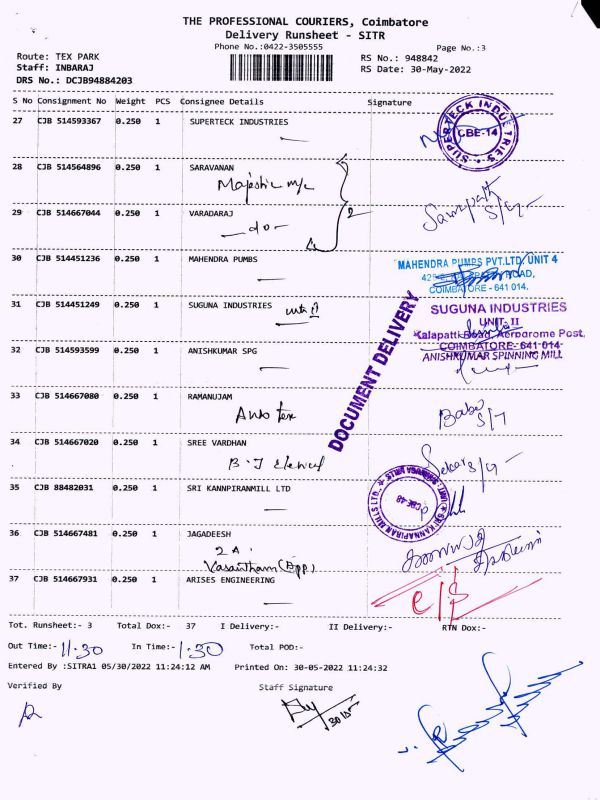 THE PROFESSIONAL COURIERS, Coimbatore
Delivery Runsheet - SITR
Phone No.:0422-3505555
Page No.:3
Route: TEX PARK
RS No.: 948842
Staff: INBARAJ
RS Date: 30-May-2022
DRS No.: DCJB94884203
S No Consignment No Weight PCS Consignee Details Signature
27 CJB 514593367 0.250 1 SUPERTECK INDUSTRIES
SUPERTECK INDUSTRIES CBE-14
28 CJB 514564896 0.250 1 SARAVANAN
Majestic m/c
29 CJB 514667044 0.250 1 VARADARAJ
- do -
2
30 CJB 514451236 0.250 1 MAHENDRA PUMBS
MAHENDRA PUMPS PVT.LTD, UNIT 4
ROAD,
COIMBATORE - 641 014.
31 CJB 514451249 0.250 1 SUGUNA INDUSTRIES
SUGUNA INDUSTRIES
UNIT. II
Kalapatti Road, Aerodrome Post,
COIMBATORE - 641 014
32 CJB 514593599 0.250 1 ANISHKUMAR SPG
ANISHKUMAR SPINNING MILL
DOCUMENT DELIVERY
33 CJB 514667080 0.250 1 RAMANUJAM
Auto Tex
Babu
34 CJB 514667020 0.250 1 SREE VARDHAN
Sekar
35 CJB 88482031 0.250 1 SRI KANNPIRANMILL LTD
CBE-48
36 CJB 514667481 0.250 1 JAGADEESH
2 A.
Vasantham (App)
37 CJB 514667931 0.250 1 ARISES ENGINEERING
C/S
Tot. Runsheet:- 3 Total Dox:- 37 I Delivery:- II Delivery:- RTN Dox:-
Out Time:- 11.30 In Time:- 1.30 Total POD:-
Entered By :SITRA1 05/30/2022 11:24:12 AM Printed On: 30-05-2022 11:24:32
Verified By Staff Signature